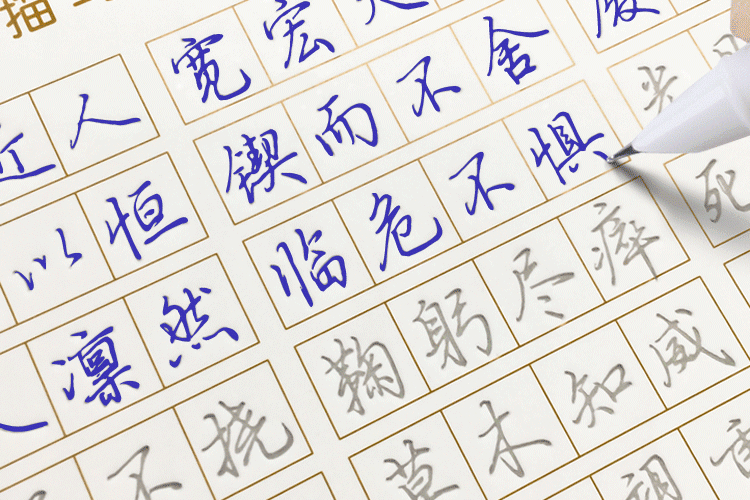 描
近人 宽宏大
以恒 锲而不舍
凛然 临危不惧 光
不挠 鞠躬尽瘁 死
草木知威